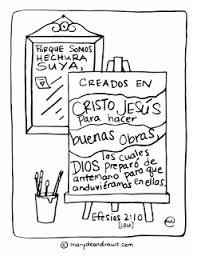 PORQUE SOMOS
HECHURA
SUYA,
CREADOS EN
CRISTO JESÚS
Para hacer
buenas Obras,
las cuales
DIOS preparó de
antemano para que
anduviéramos en ellas.
Efesios 2:10
[LBLA]
© marydeandraws.com